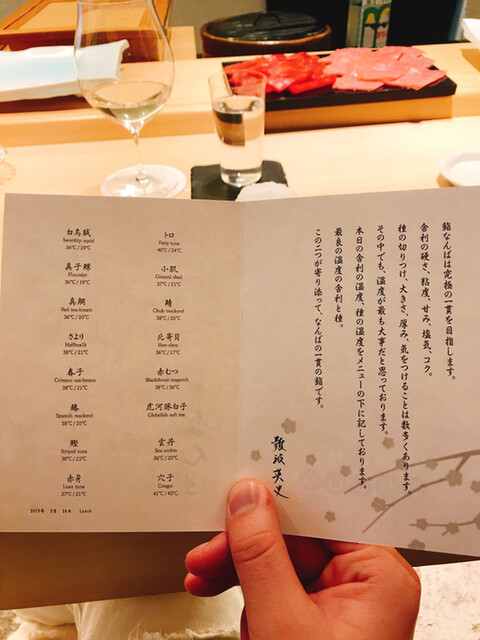 鮨なんばは究極の一貫を目指します。
舎利の硬さ、粘度、甘み、塩気、コク。
種の切りつけ、大きさ、厚み、気をつけることは数多くあります。
その中でも、温度が最も大事だと思っております。
本日の舎利の温度、種の温度をメニューの下に記しております。
最良の温度の舎利と種。
この二つが寄り添って、なんばの一貫の鮨です。
難波英史
白烏賊
Swordtip squid
36℃/19℃
真子鰈
Flounder
36℃/19℃
真鯛
Red sea-bream
36℃/20℃
さより
Halfbeak
38℃/21℃
春子
Crimson sea-bream
38℃/21℃
鰆
Spanish mackerel
38℃/20℃
鰹
Striped tuna
38℃/23℃
赤身
Lean tuna
37℃/21℃
トロ
Fatty tuna
40℃/24℃
小肌
Gizzard shad
37℃/21℃
鯖
Chub mackerel
38℃/20℃
北寄貝
Hen clam
36℃/17℃
赤むつ
Blackthroat seaperch
38℃/36℃
虎河豚白子
Globefish soft roe
雲丹
Sea urchin
36℃/20℃
穴子
Conger
41℃/45℃
Lunch